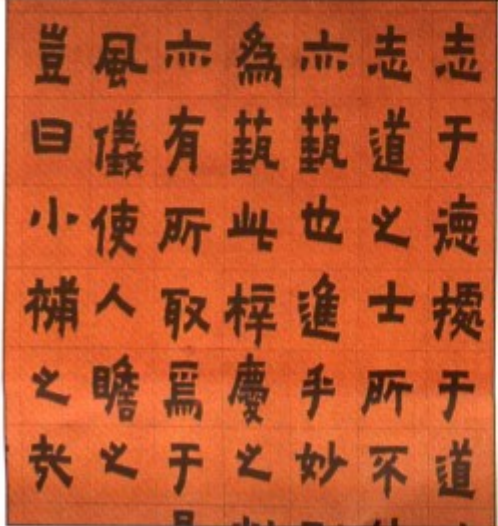 志于德據于道
志道之士所不
亦藝也進乎妙
為藝此梓慶之
亦有所取焉于
風儀使人瞻之
豈曰小補之哉